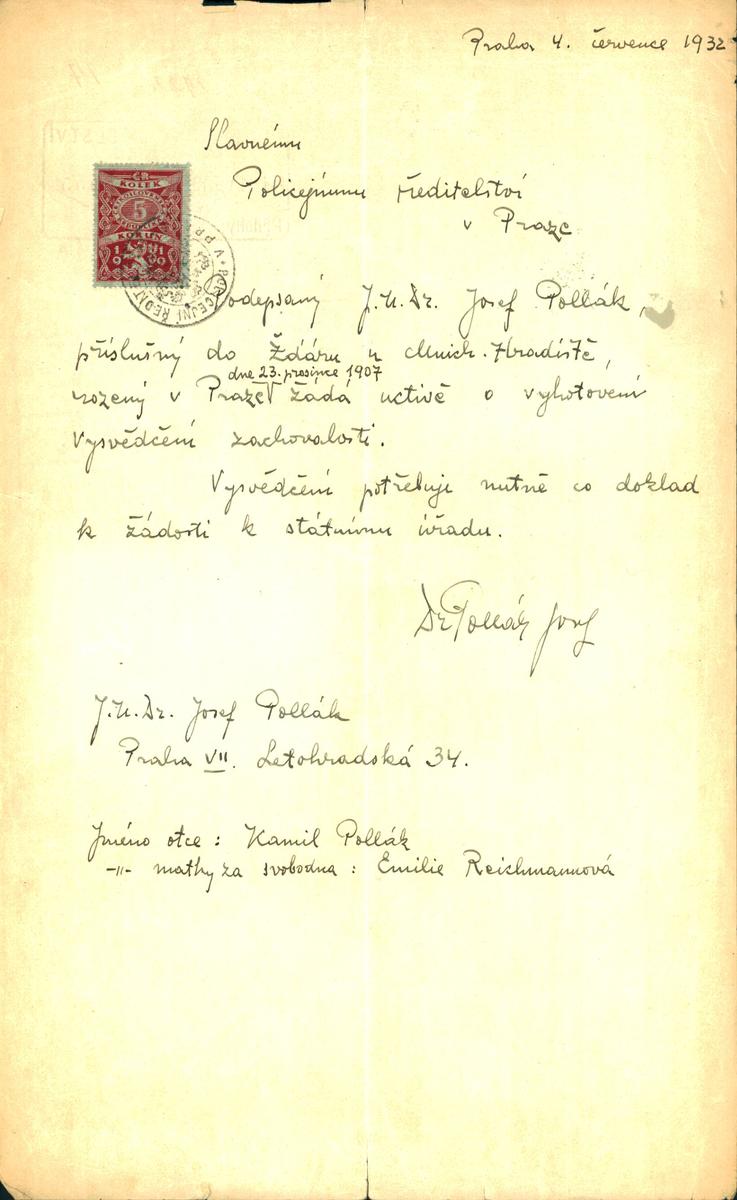 Praha 4. července 1932
Slavnému
Policejnímu ředitelství
v Praze
ČR
KOLEK
5
KORUN
1919
POLICEJNÍ ŘEDIT
V PR
Podepsaný J.U.Dr. Josef Pollák,
příslušný do Žďáru u Mnich. Hradiště,
dne 23. prosince 1907
rozený v Praze žádá uctivě o vyhotovení
vysvědčení zachovalosti.
Vysvědčení potřebuji nutně co doklad
k žádosti k státnímu úřadu.
Dr Pollák Josef
J.U.Dr. Josef Pollák
Praha VII. Letohradská 34.
Jméno otce : Kamil Pollák
-"- matky za svobodna : Emilie Reichmannová